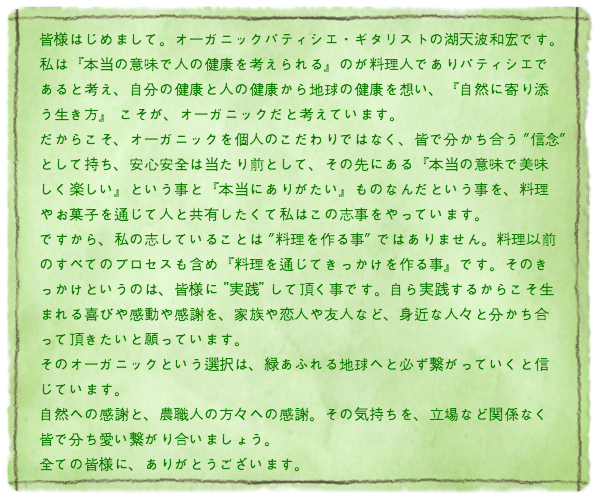 皆様はじめまして。オーガニックパティシエ・ギタリストの湖天波和宏です。
私は『本当の意味で人の健康を考えられる』のが料理人でありパティシエで
あると考え、自分の健康と人の健康から地球の健康を想い、『自然に寄り添
う生き方』 こそが、オーガニックだと考えています。
だからこそ、オーガニックを個人のこだわりではなく、皆で分かち合う”信念”
として持ち、安心安全は当たり前として、その先にある『本当の意味で美味
しく楽しい』という事と『本当にありがたい』ものなんだという事を、料理
やお菓子を通じて人と共有したくて私はこの志事をやっています。
ですから、私の志していることは”料理を作る事”ではありません。料理以前
のすべてのプロセスも含め『料理を通じてきっかけを作る事』です。そのき
っかけというのは、皆様に”実践”して頂く事です。自ら実践するからこそ生
まれる喜びや感動や感謝を、家族や恋人や友人など、身近な人々と分かち合
って頂きたいと願っています。
そのオーガニックという選択は、緑あふれる地球へと必ず繋がっていくと信
じています。
自然への感謝と、農職人の方々への感謝。その気持ちを、立場など関係なく
皆で分ち愛い繋がり合いましょう。
全ての皆様に、ありがとうございます。